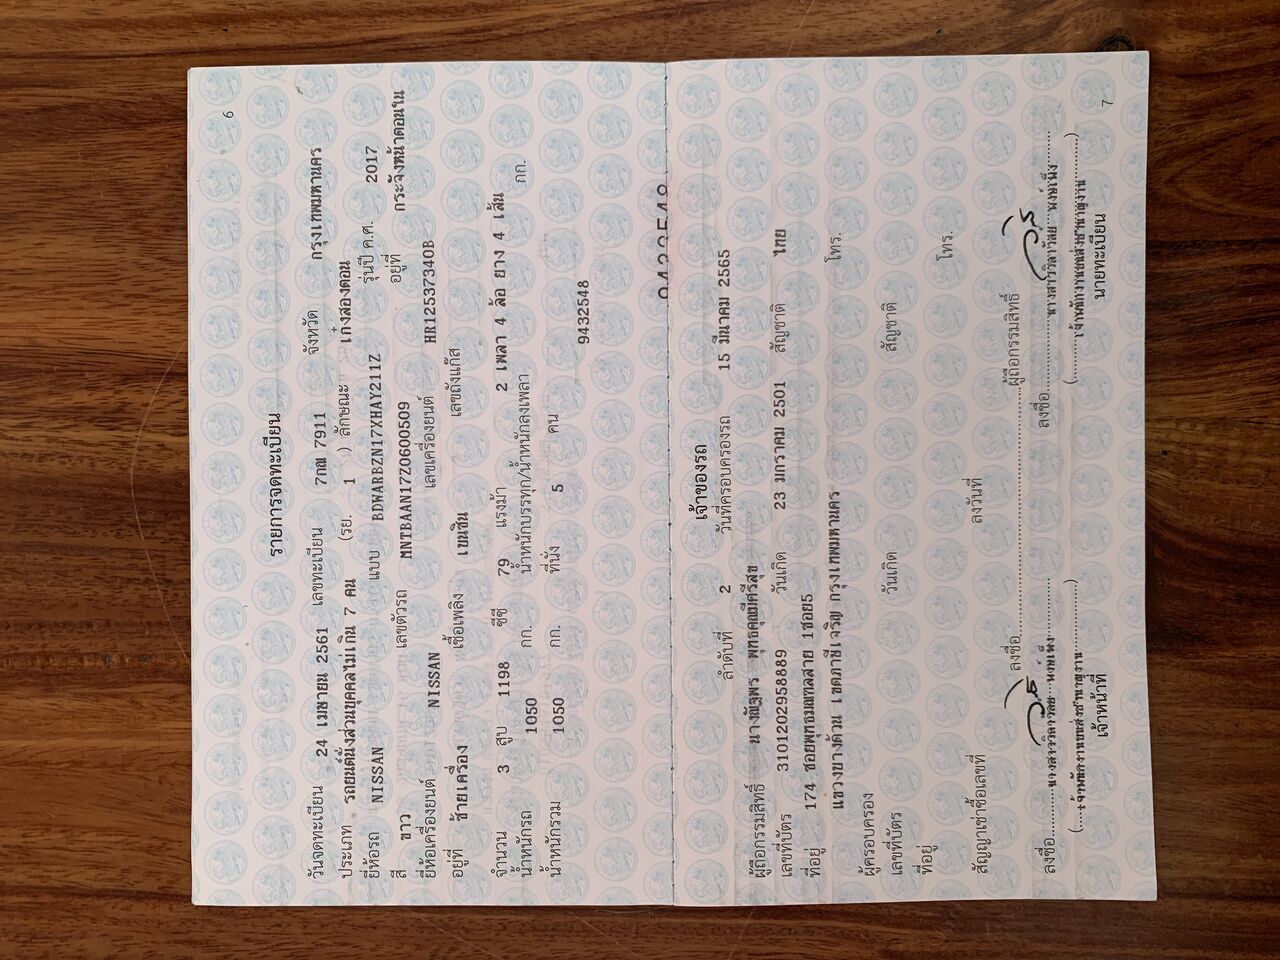 6
รายการจดทะเบียน
วันจดทะเบียน 24 เมษายน 2561 เลขทะเบียน 7กณ 7911 จังหวัด กรุงเทพมหานคร
ประเภท รถยนต์นั่งส่วนบุคคลไม่เกิน 7 คน (รย. 1 ) ลักษณะ เก๋งสองตอน
ยี่ห้อรถ NISSAN แบบ BDWARBZN17XHAY211Z รุ่นปี ค.ศ. 2017
สี ขาว เลขตัวรถ MNTBAAN17Z0600509 อยู่ที่ กระจังหน้าตอนใน
ยี่ห้อเครื่องยนต์ NISSAN เลขเครื่องยนต์ HR12537340B
อยู่ที่ ซ้ายเครื่อง เชื้อเพลิง เบนซิน เลขถังแก๊ส
จำนวน 3 สูบ 1198 ซีซี 79 แรงม้า 2 เพลา 4 ล้อ ยาง 4 เส้น
น้ำหนักรถ 1050 กก. น้ำหนักบรรทุก/น้ำหนักลงเพลา กก.
น้ำหนักรวม 1050 กก. ที่นั่ง 5 คน
9432548
9432548
เจ้าของรถ
ลำดับที่ 2 วันที่ครอบครองรถ 15 มีนาคม 2565
ผู้ถือกรรมสิทธิ์ นางณัฐพร พุทธคุณมีศรีสุข
เลขที่บัตร 3101202958889 วันเกิด 23 มกราคม 2501 สัญชาติ ไทย
ที่อยู่ 174 ซอยพุทธมณฑลสาย 1ซอย5
แขวงบางด้วน เขตภาษีเจริญ กรุงเทพมหานคร โทร.
ผู้ครอบครอง
เลขที่บัตร วันเกิด สัญชาติ
ที่อยู่
โทร.
สัญญาเช่าซื้อเลขที่ ลงวันที่
ลงชื่อ ผู้ถือกรรมสิทธิ์
ลงชื่อ พงษ์เพ็ง ลงชื่อ นางสาววิลาวัลย์ พงษ์เพ็ง
(เจ้าพนักงานขนส่งชำนาญงาน) (เจ้าพนักงานขนส่งชำนาญงาน)
เจ้าหน้าที่ นายทะเบียน
7